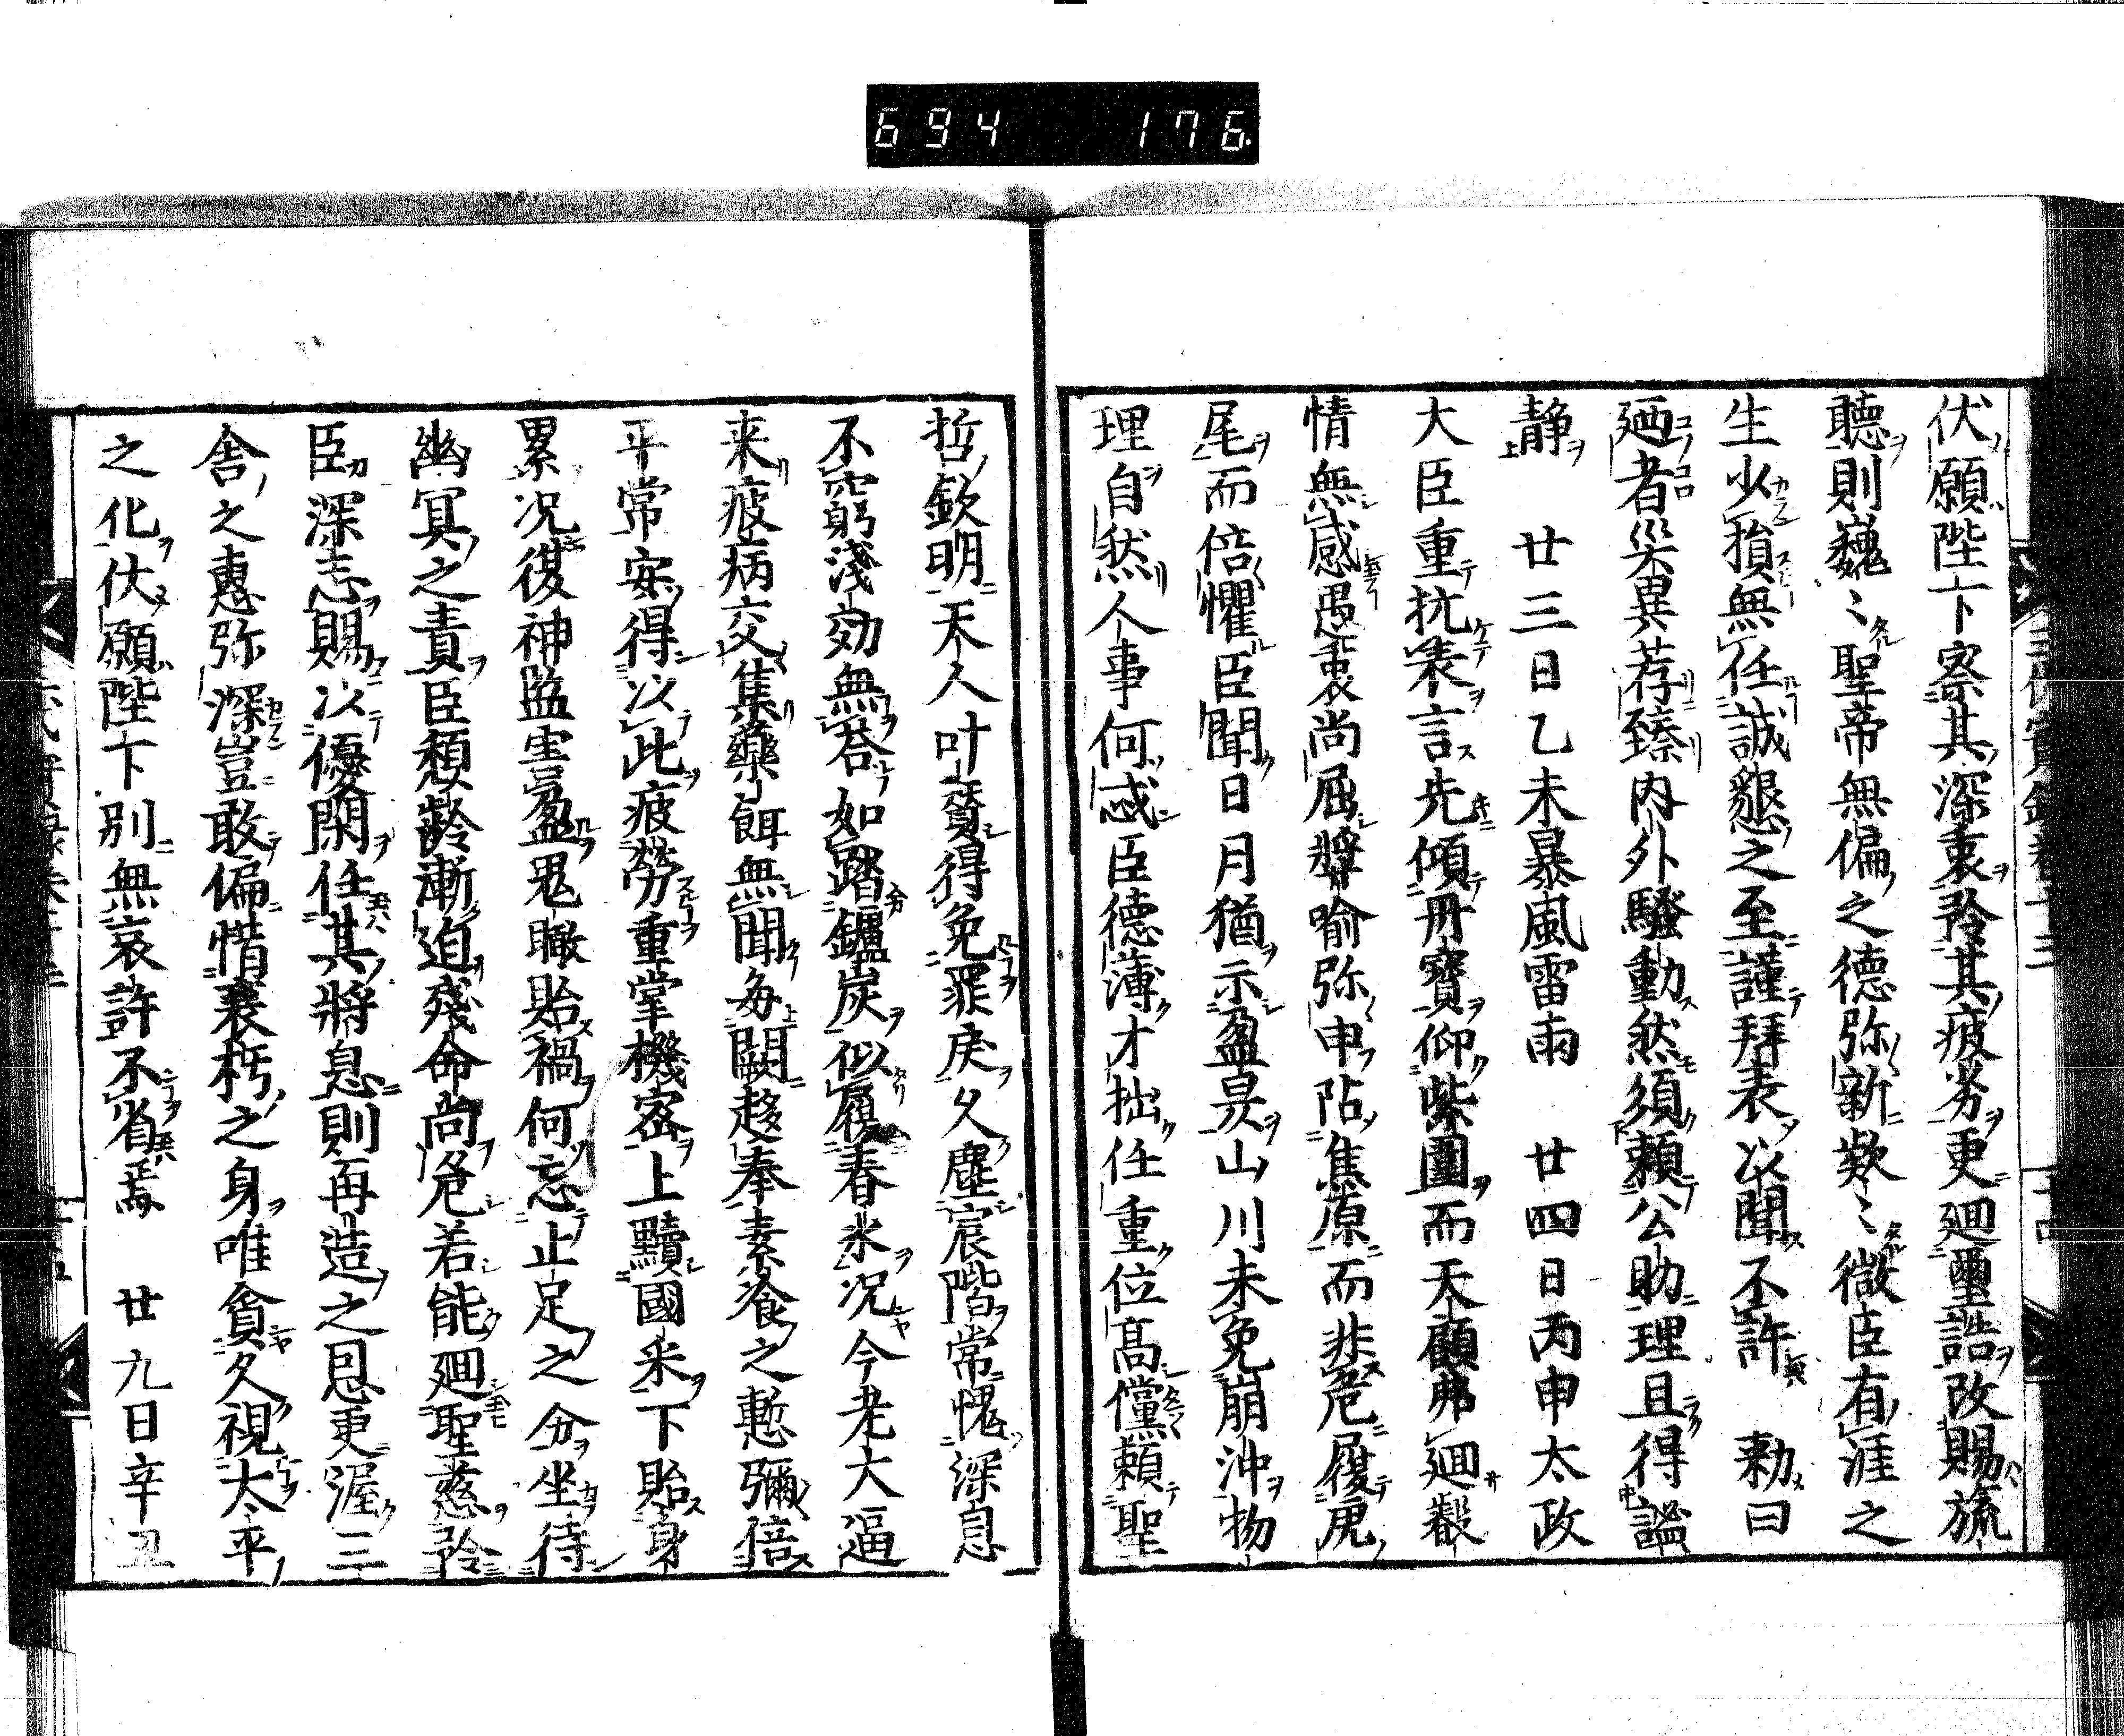 694 176
伏願陛下察其深衷矜其疲劣更廻璽誥改賜旒
聽則巍〻聖帝無偏之德弥新欵〻微臣有涯之
生少損無任誠懇之至謹拜表以聞不許 勑曰
廼者災異荐臻内外騷動然須頼公助理且得謐
静 廿三日乙未暴風雷雨 廿四日丙申太政
大臣重抗表言先傾丹寳仰紫圍而天顧弗廻叡
情無感愚衷尚屈奬喩弥申阽焦原而非危履虎
尾而倍懼臣聞日月猶示盈昃山川未免崩沖物
理自然人事何惑臣德薄才拙任重位髙儻頼聖
哲欽明天人叶賛得免罪戻久塵宸階常愧深息
不窮淺効無荅如踏鑪炭似履春氷况今老大逼
来疲病交集藥餌無聞每闕趍奉素飡之慙彌倍
平常安得以此疲勞重掌機密上黷國米下貽身
累况復神監害盈鬼瞰貽禍何忘止足之分坐待
幽冥之責臣頽齡漸迫殘命尚危若能廻聖慈矜
臣深志賜以優閑任其將息則再造之恩更渥三
舎之惠弥深豈敢偏惜衰朽之身唯貪久視太平
之化伏願陛下別無哀許不省焉 廿九日辛丑